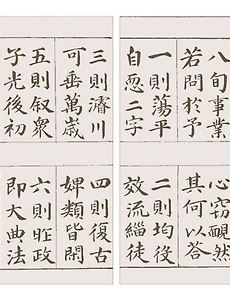 八旬事業 心窃靦然
若問於予 其何以答
一則蕩平 二則均役
自恧二字 效流緇徒
三則濬川 四則復古
可垂萬歲 婢類皆閑
五則叙衆 六則昨政
子光後初 即大典法